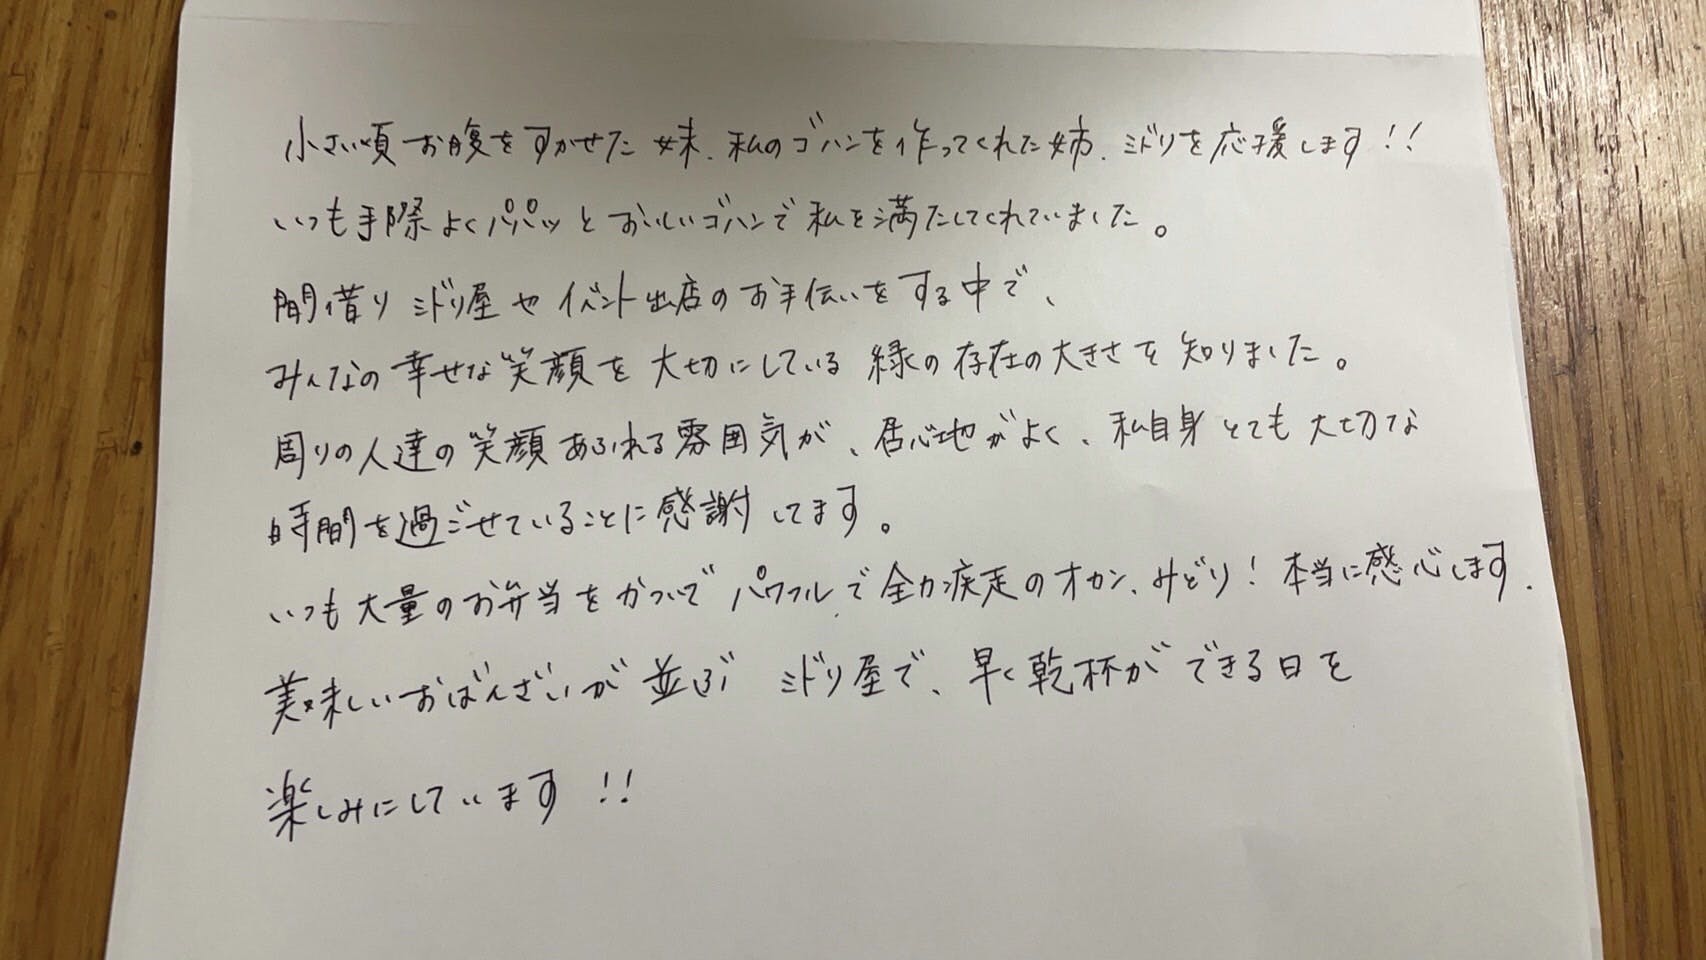 小さい頃お腹をすかせた妹、私のゴハンを作ってくれた姉、ミドリを応援します!!
いつも手際よくパパッとおいしいゴハンで私を満たしてくれていました。
間借りミドリ屋やイベント出店のお手伝いをする中で、
みんなの幸せな笑顔を大切にしている緑の存在の大きさを知りました。
周りの人達の笑顔あふれる雰囲気が、居心地がよく、私自身とても大切な
時間を過ごせていることに感謝してます。
いつも大量のお弁当をかついでパワフルで全力疾走のオカン、みどり!本当に感心します.
美味しいおばんざいが並ぶミドリ屋で、早く乾杯ができる日を
楽しみにしています!!